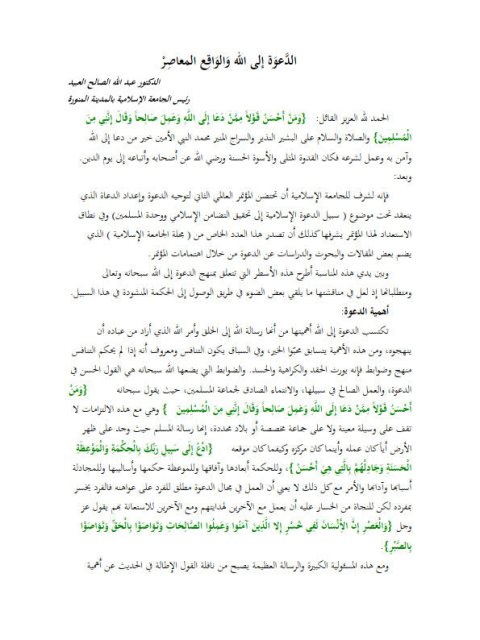 الدَّعوَة إلى الله وَالوَاقِع المعاصِرْ
الدكتور عبد الله الصالح العبيد
رئيس الجامعة الإسلامية بالمدينة المنورة
الحمد لله العزيز القائل: {وَمَنْ أَحْسَنُ قَوْلاً مِمَّنْ دَعَا إِلَى اللَّهِ وَعَمِلَ صَالِحاً وَقَالَ إِنَّنِي مِنَ
الْمُسْلِمِينَ} والصلاة والسلام على البشير النذير والسراج المنير محمد النبي الأمين خير من دعا إلى الله
وآمن به وعمل لشرعه فكان القدوة المثلى والأسوة الحسنة ورضي الله عن أصحابه وأتباعه إلى يوم الدين.
وبعد:
فإنه لشرف للجامعة الإسلامية أن تحتضن المؤتمر العالمي الثاني لتوجيه الدعوة وإعداد الدعاة الذي
ينعقد تحت موضوع ( سبيل الدعوة الإسلامية إلى تحقيق التضامن الإسلامي ووحدة المسلمين) وفي نطاق
الاستعداد لهذا المؤتمر يشرفها كذلك أن تصدر هذا العدد الخاص من ( مجلة الجامعة الإسلامية ) الذي
يضم بعض المقالات والبحوث والدراسات عن الدعوة من خلال اهتمامات المؤتمر.
وبين يدي هذه المناسبة أطرح هذه الأسطر التي تتعلق بمنهج الدعوة إلى الله سبحانه وتعالى
ومتطلباتها إذ لعل في مناقشتها ما يلقي بعض الضوء في طريق الوصول إلى الحكمة المنشودة في هذا السبيل.
أهمية الدعوة:
تكتسب الدعوة إلى الله أهميتها من أنها رسالة الله إلى الخلق وأمر الله الذي أراد من عباده أن
ينهجوه، ومن هذه الأهمية يتسابق محبّوا الخير، وفي السباق يكون التنافس ومعروف أنه إذا لم يحكم التنافس
منهج وضوابط فإنه يورث الحقد والكراهية والحسد. والضوابط التي يضعها الله سبحانه هي القول الحسن في
الدعوة، والعمل الصالح في سبيلها، والانتماء الصادق لجماعة المسلمين، حيث يقول سبحانه {وَمَنْ
أَحْسَنُ قَوْلاً مِمَّنْ دَعَا إِلَى اللَّهِ وَعَمِلَ صَالِحاً وَقَالَ إِنَّنِي مِنَ الْمُسْلِمِينَ } وهي مع هذه الالتزامات لا
تقف على وسيلة معينة ولا على جماعة مخصصة أو بلاد محددة، إنها رسالة المسلم حيث وجد على ظهر
الأرض أياً كان عمله وأينما كان مركزه وكيفما كان موقعه {ادْعُ إِلَى سَبِيلِ رَبِّكَ بِالْحِكْمَةِ وَالْمَوْعِظَةِ
الْحَسَنَةِ وَجَادِلْهُمْ بِالَّتِي هِيَ أَحْسَنُ }، وللحكمة أبعادها وآفاقها وللموعظة حكمها وأساليبها وللمجادلة
أسبابها وآدابها والأمر مع كل ذلك لا يعني أن العمل في مجال الدعوة مطلق للفرد على عواهنه فالفرد يخسر
بمفرده لكن للنجاة من الخسار عليه أن يعمل مع الآخرين لهدايتهم ومع الآخرين للاستعانة بهم يقول عز
وجل {وَالْعَصْرِ إِنَّ الْأِنْسَانَ لَفِي خُسْرٍ إِلا الَّذِينَ آمَنُوا وَعَمِلُوا الصَّالِحَاتِ وَتَوَاصَوْا بِالْحَقِّ وَتَوَاصَوْا
بِالصَّبْرِ}.
ومع هذه المسئولية الكبيرة والرسالة العظيمة يصبح من نافلة القول الإطالة في الحديث عن أهمية